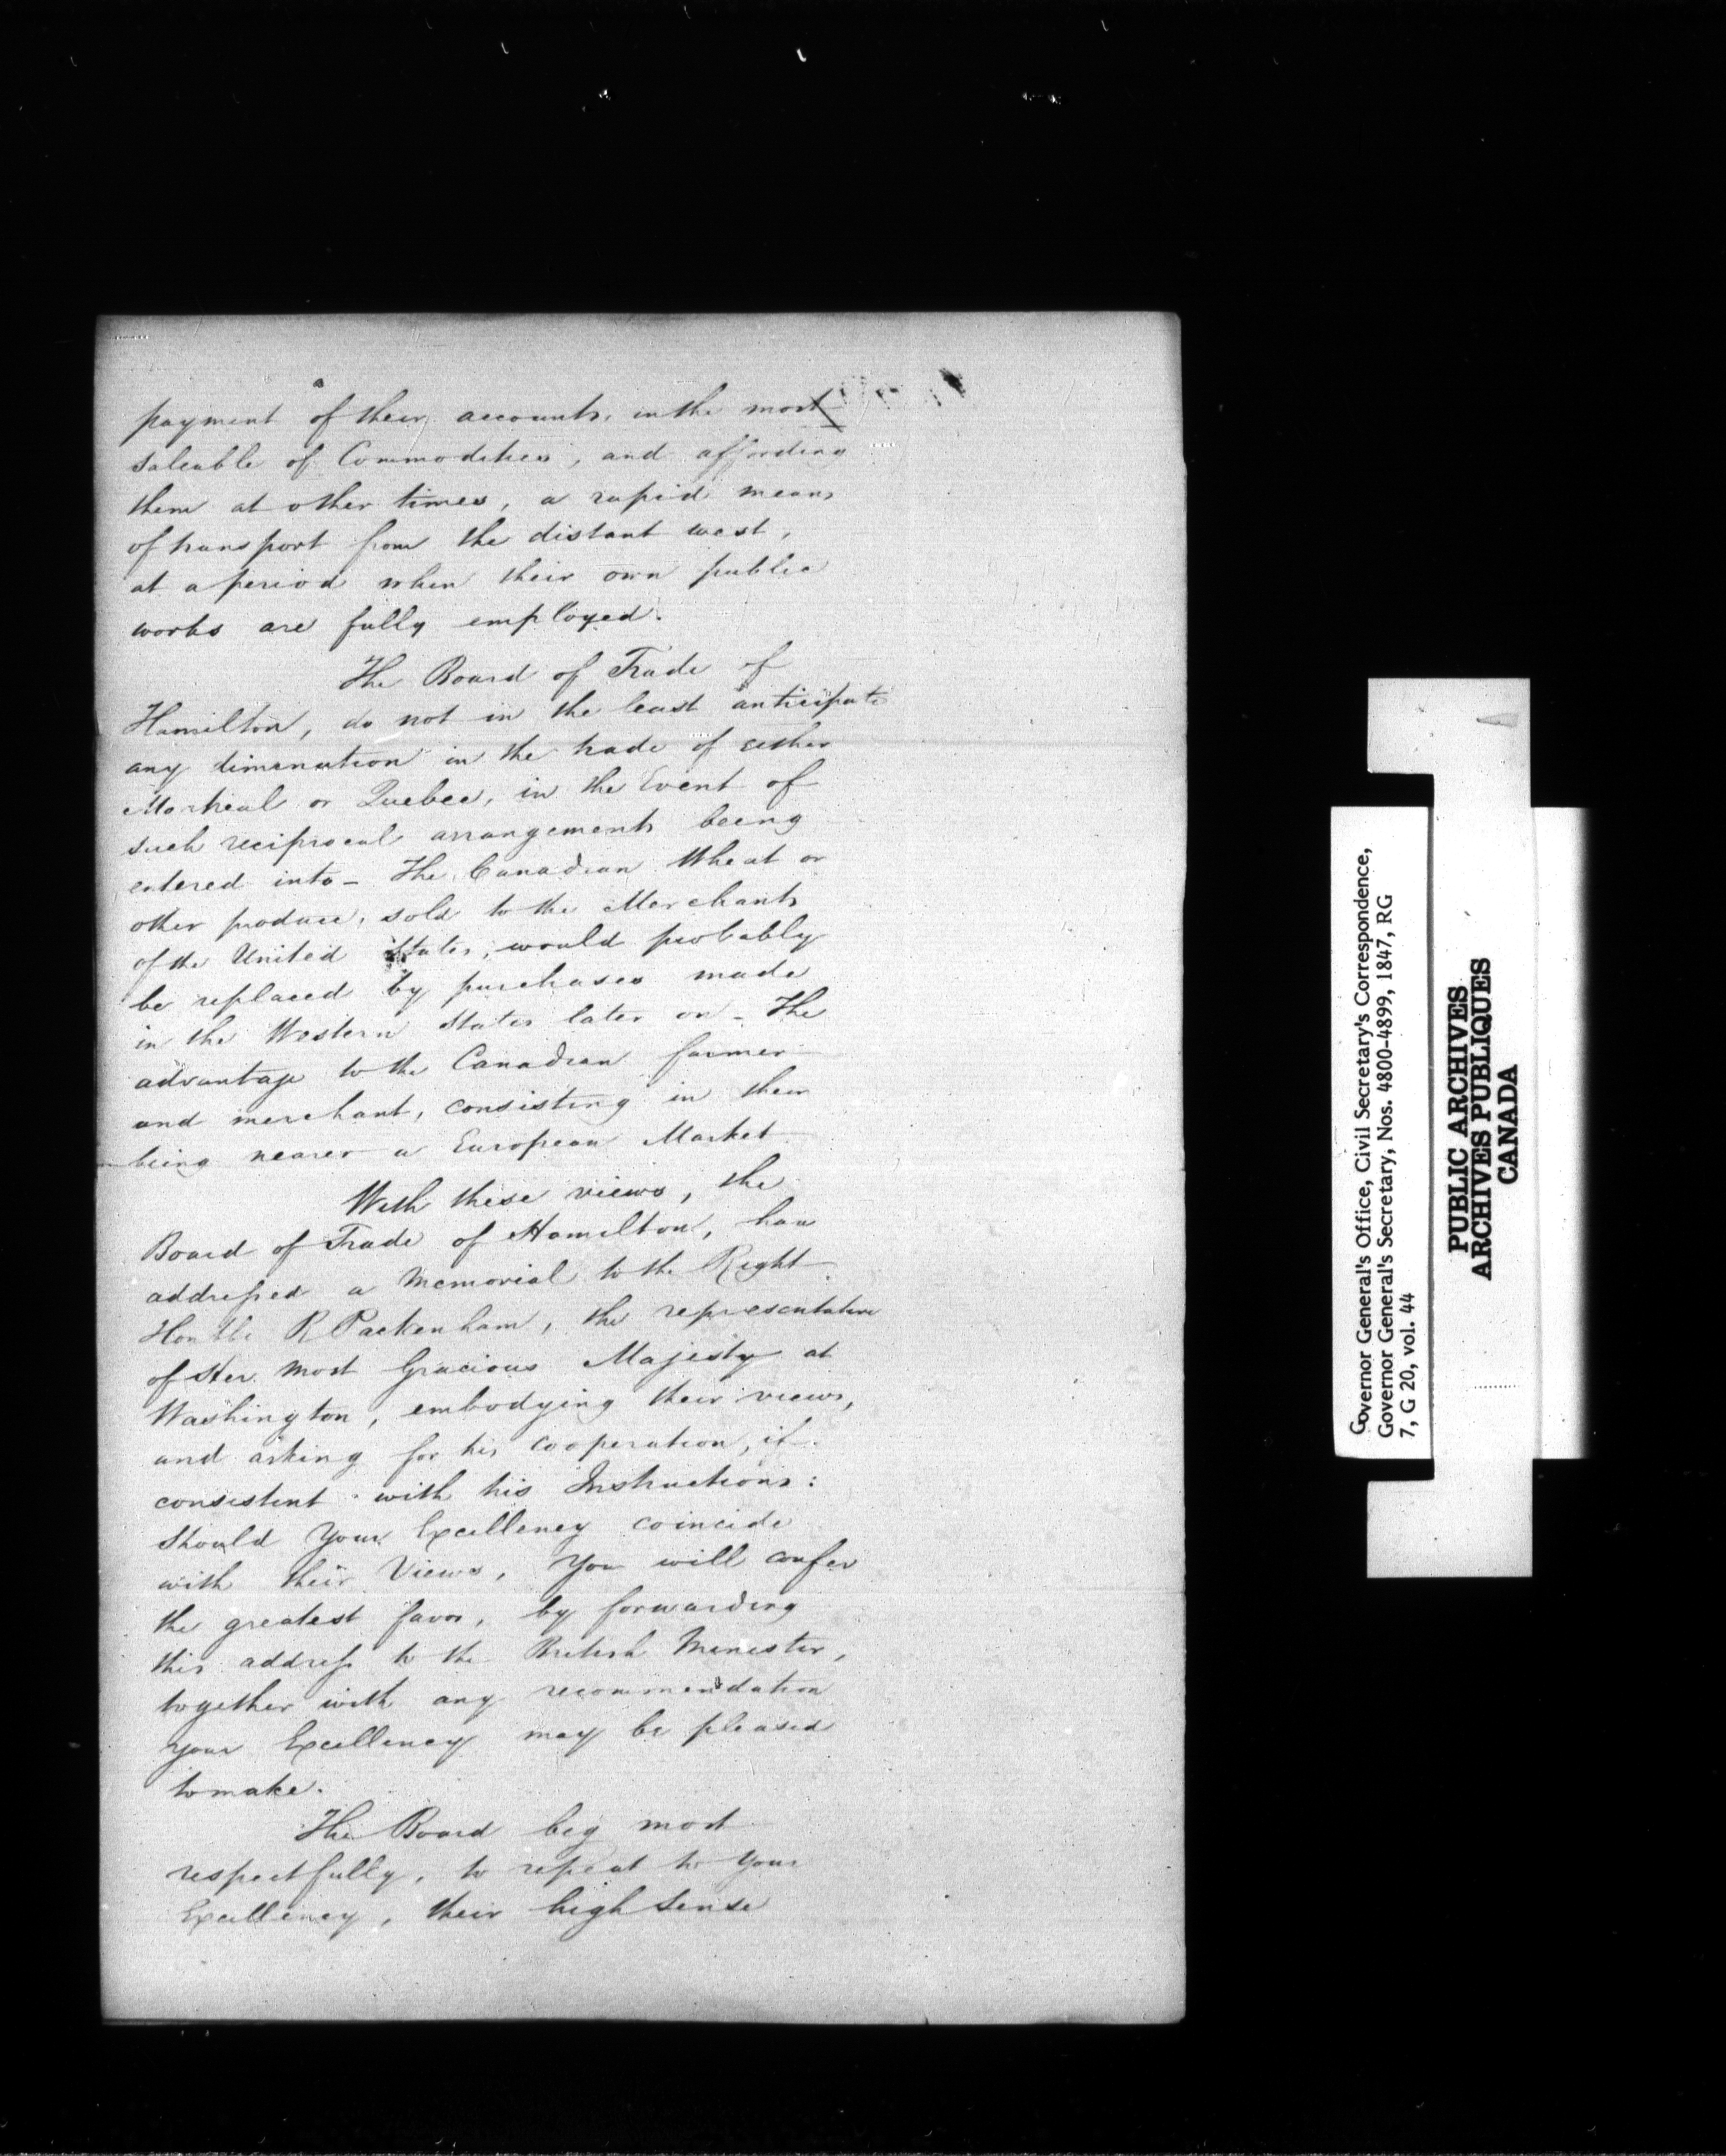 payment of their accounts, in the most
saleable of Commodities, and affording
them at other times, a rapid means
of transport from the distant west,
at a period when their own public
works are fully employed.
The Board of Trade of
Hamilton, do not in the least anticipate
any dimenution in the trade of either
Montreal or Quebec, in the Event of
such reciprocal arrangements being
entered into - The Canadian Wheat or
other produce, sold to the Merchants
of the United States, would probably
be replaced by purchases made
in the Western States later on - The
advantage to the Canadian farmer
and merchant, consisting in their
being nearer a European Market
With these views, the
Board of Trade of Hamilton, have
addressed a Memorial to the Right
Honble R Packenham, the representative
of Her Most Gracious Majesty at
Washington, embodying their views,
and asking for his cooperation, if
consistent with his Instructions:
Should Your Excellency coincide
with their Views, You will confer
the greatest favor, by forwarding
this address to the British Minister,
together with any recommendation
Your Excellency may be pleased
to make.
The Board beg most
respectfully, to repeat to Your
Excellency, their high sense
Governor General's Office, Civil Secretary's Correspondence,
Governor General's Secretary, Nos. 4800-4899, 1847, RG
7, G 20, vol. 44
PUBLIC ARCHIVES
ARCHIVES PUBLIQUES
CANADA